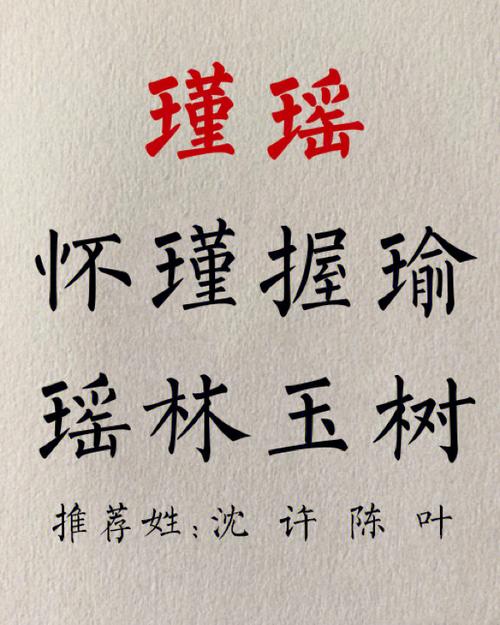 瑾瑶
怀瑾握瑜
瑶林玉树
推荐姓:沈 许 陈 叶